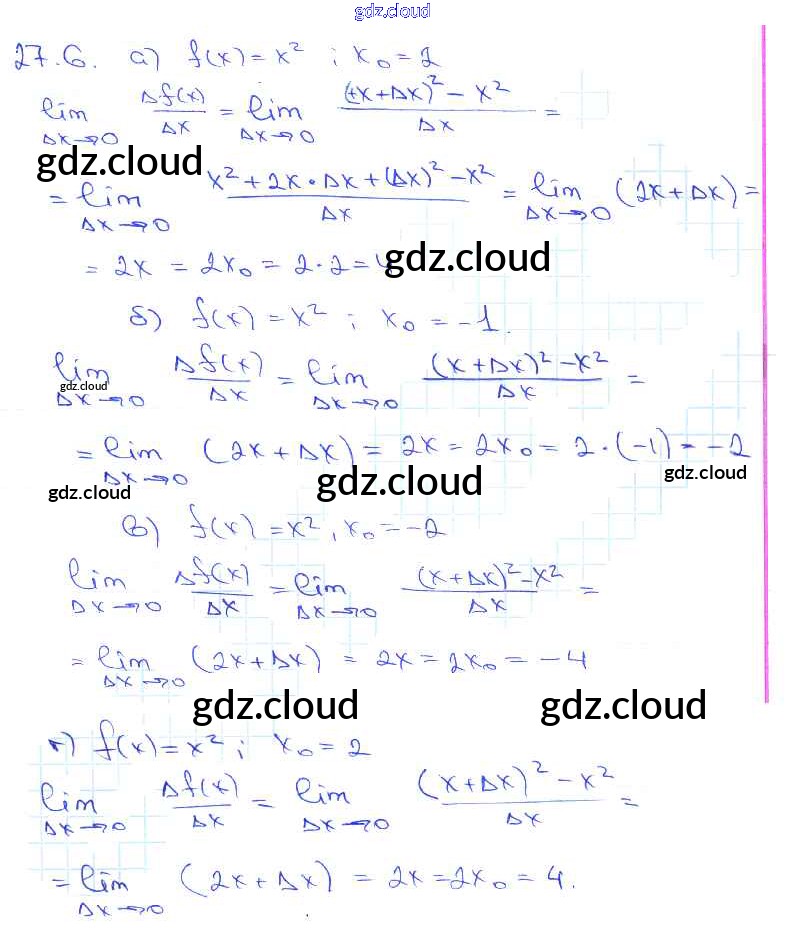 gdz.cloud
27.6. а) f(x) = x² ; x₀ = 2
lim Δx→0 Δf(x)/Δx = lim Δx→0 ((x+Δx)² − x²)/Δx =
gdz.cloud
= lim Δx→0 (x² + 2x·Δx + (Δx)² − x²)/Δx = lim Δx→0 (2x + Δx) =
= 2x = 2x₀ = 2·2 = gdz.cloud
б) f(x) = x² ; x₀ = −1.
lim Δx→0 Δf(x)/Δx = lim Δx→0 ((x+Δx)² − x²)/Δx =
gdz.cloud
= lim Δx→0 (2x + Δx) = 2x = 2x₀ = 2·(−1) = −2
gdz.cloud gdz.cloud gdz.cloud
в) f(x) = x², x₀ = −2
lim Δx→0 Δf(x)/Δx = lim Δx→0 ((x+Δx)² − x²)/Δx =
= lim Δx→0 (2x + Δx) = 2x = 2x₀ = −4
gdz.cloud gdz.cloud
г) f(x) = x² ; x₀ = 2
lim Δx→0 Δf(x)/Δx = lim Δx→0 ((x+Δx)² − x²)/Δx =
= lim Δx→0 (2x + Δx) = 2x = 2x₀ = 4.